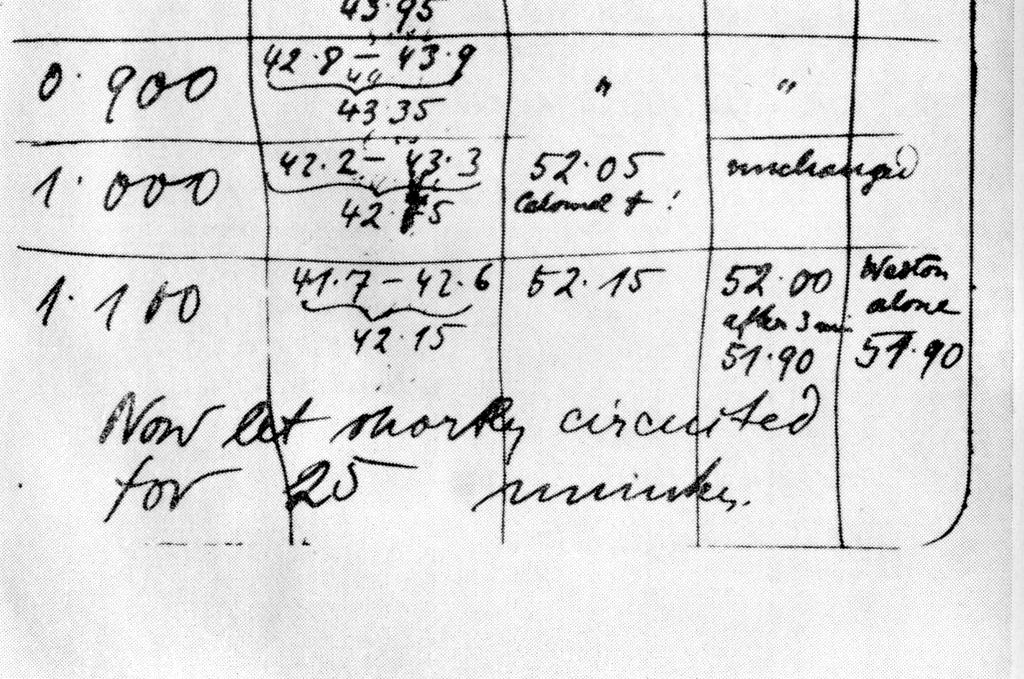 43.95
0.900 42.8 – 43.9 " "
43.35
1.000 42.2 – 43.3 52.05 unchanged
42.75 Calomel + !
1.100 41.7 – 42.6 52.15 52.00 Weston
42.15 after 3 min alone
51.90 51.90
Now let shortly circuited
for 25 minutes.